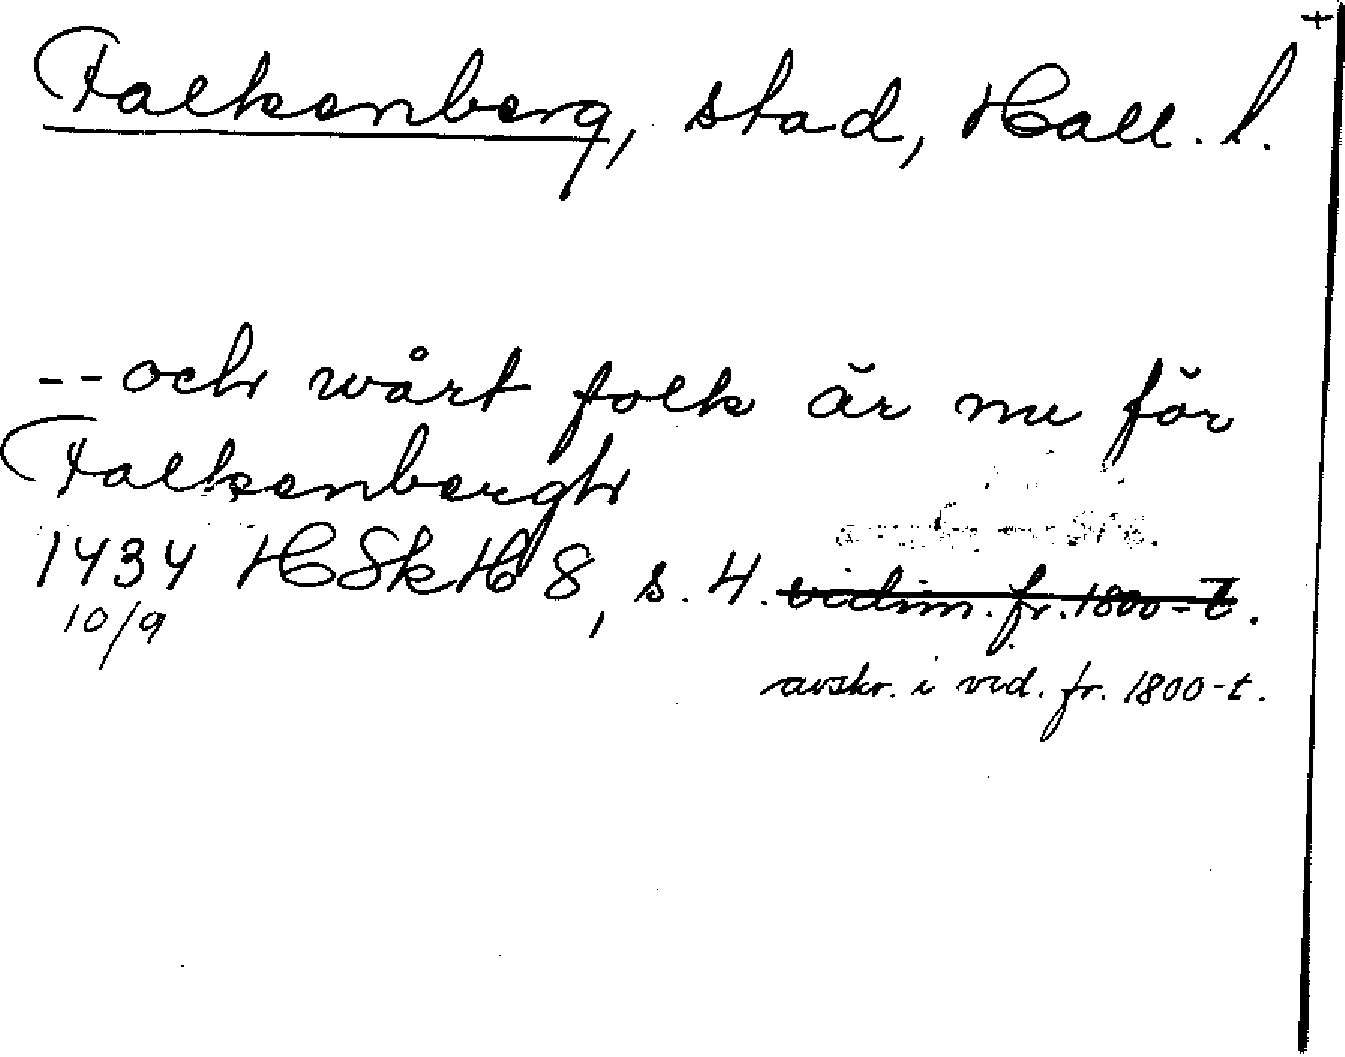 +
Falkenberg, stad, Hall. l.
-- och wårt folk är nu för
Falkenbergh
1434 HSkH 8, s. 4. vidim. fr. 1800-t.
10/9
avskr. i vid. fr. 1800-t.